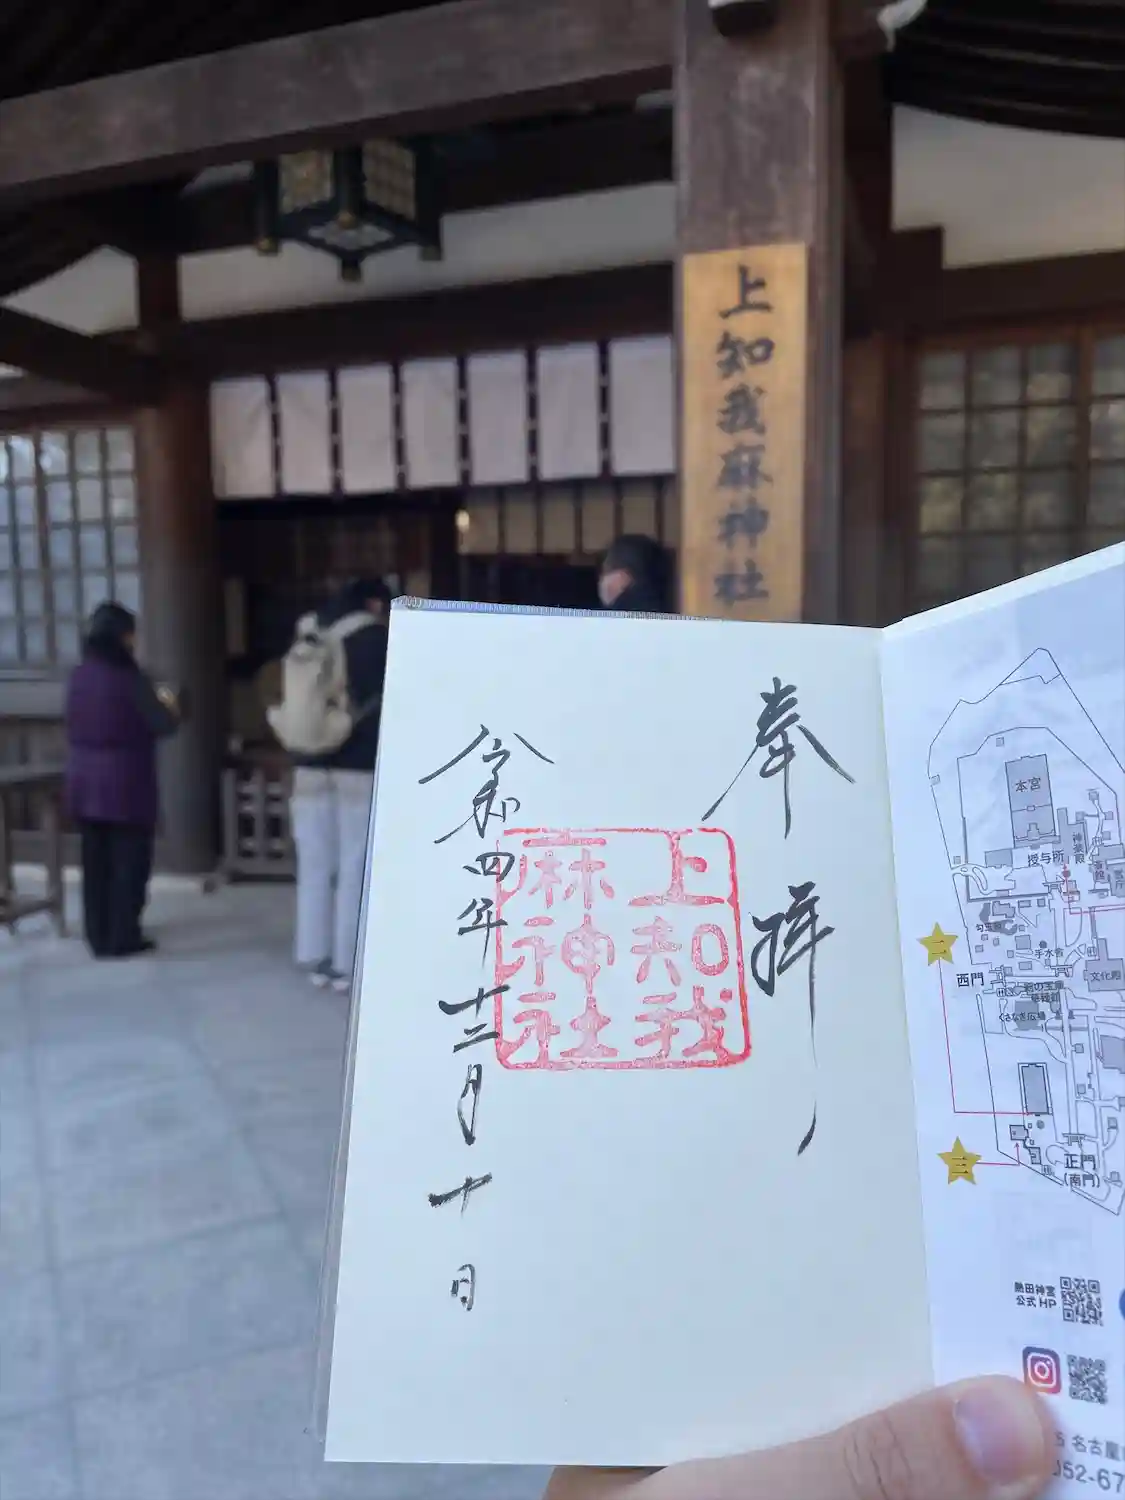 上知我麻神社
奉拝
上知我
麻神社
令和四年十二月十日
本宮
神楽殿
授与所
勾玉池
手水舎
二
西門
文化殿
剣の宝庫
草薙館
くさなぎ広場
三
正門
(南門)
熱田神宮
公式HP
名古屋
052-67